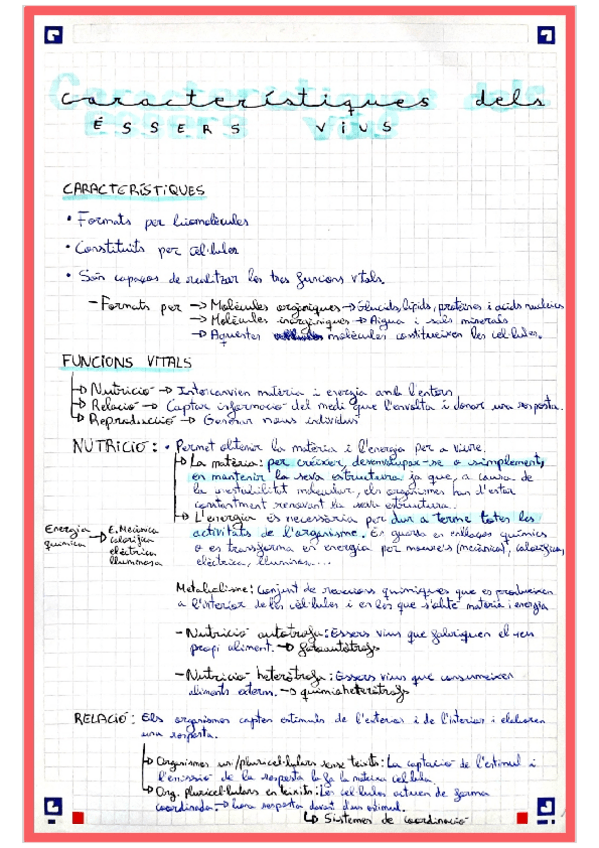 Característiques dels
ÉSSERS VIUS
CARACTERÍSTIQUES
• Formats per biomolècules
• Constituïts per cèl·lules
• Són capaços de realitzar les tres funcions vitals.
- Formats per → Molècules orgàniques → Glúcids, lípids, proteïnes i àcids nucleics
→ Molècules inorgàniques → Aigua i sals minerals
→ Aquestes molècules constitueixen les cèl·lules.
FUNCIONS VITALS
→ Nutrició → Intercanvien matèria i energia amb l'entorn
→ Relació → Captar informació del medi que l'envolta i donar una resposta.
→ Reproducció → Generar nous individus
NUTRICIÓ: • Permet obtenir la matèria i l'energia per a viure.
→ La matèria: per créixer, desenvolupar-se o simplement,
en mantenir la seva estructura ja que, a causa de
la inestabilitat molecular, els organismes han d'estar
constantment renovant la seva estructura.
→ L'energia és necessària per dur a terme totes les
activitats de l'organisme. En guarda en enllaços químics
o es transforma en energia per moure's (mecànica), calorífica,
elèctrica, lluminosa...
Energia química → E. Mecànica
calorífica
elèctrica
lluminosa
Metabolisme: Conjunt de reaccions químiques que es produeixen
a l'interior de les cèl·lules i en les que s'obté matèria i energia
- Nutrició autòtrofa: Éssers vius que fabriquen el seu
propi aliment. → fotoautòtrofs
- Nutrició heteròtrofa: Éssers vius que consumeixen
aliments extern. → quimioheteròtrofs
RELACIÓ: Els organismes capten estímuls de l'exterior i de l'interior i elaboren
una resposta.
→ Organismes uni/pluricel·lulars sense teixits: La captació de l'estímul i
l'emissió de la resposta la fa la mateixa cèl·lula.
→ Org. pluricel·lulars en teixits: Les cèl·lules actuen de forma
coordinada. → bona resposta davant d'un estímul.
↳ Sistemes de coordinació